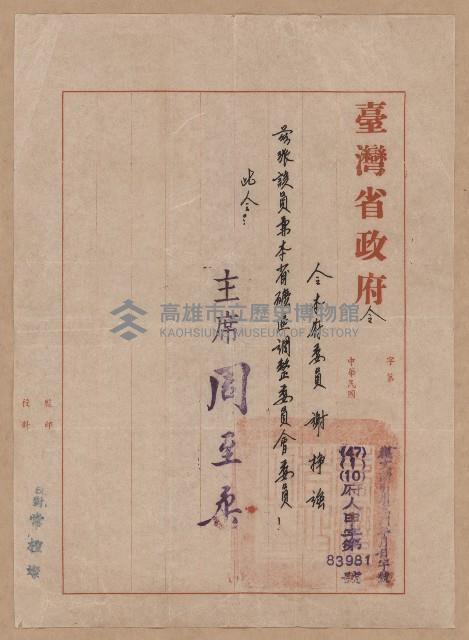 臺灣省政府令
字第
中華民國
(47)(1)(10)府人甲字第83981號
令本府委員謝掙強
茲派該員兼本省礦區調整委員會委員！
此令：
主席周至柔
監印
校對
高雄市立歷史博物館
KAOHSIUNG MUSEUM OF HISTORY